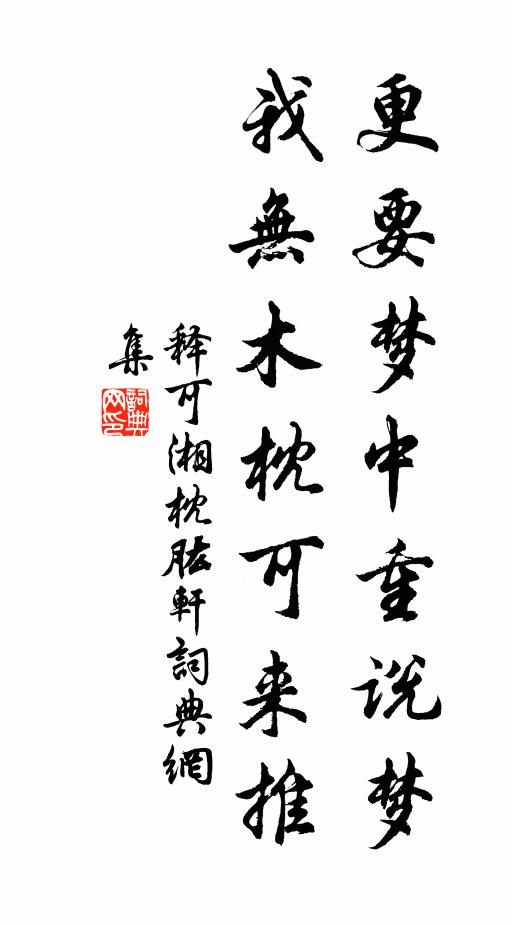 更要梦中重说梦
我無木枕可来推
释可湘枕肱軒詞典網
集
詞典
网印